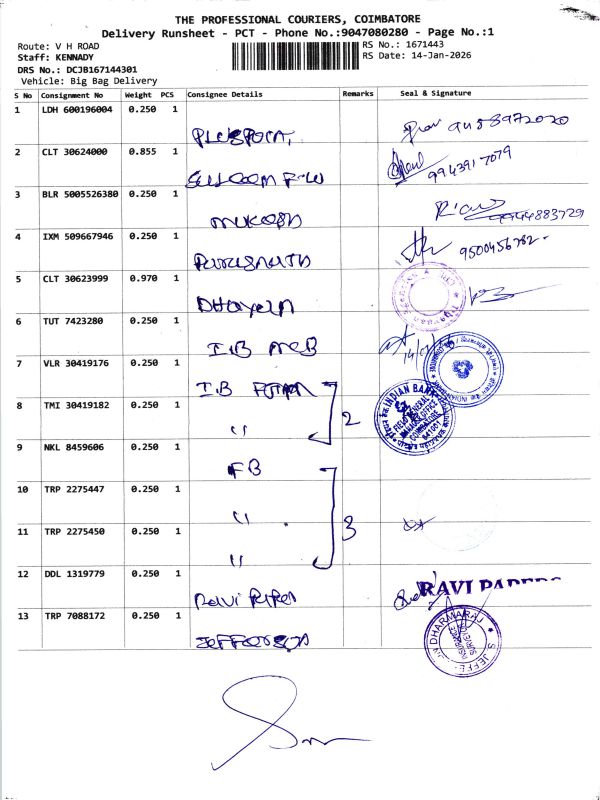 THE PROFESSIONAL COURIERS, COIMBATORE
Delivery Runsheet - PCT - Phone No.:9047080280 - Page No.:1
Route: V H ROAD
RS No.: 1671443
Staff: KENNADY
RS Date: 14-Jan-2026
DRS No.: DCJB167144301
Vehicle: Big Bag Delivery
S No Consignment No Weight PCS Consignee Details Remarks Seal & Signature
1 LDH 600196004 0.250 1
9458972020
2 CLT 30624000 0.855 1
9943917079
3 BLR 5005526380 0.250 1
mukesh
9944883729
4 IXM 509667946 0.250 1
9500456782
5 CLT 30623999 0.970 1
6 TUT 7423280 0.250 1
I.B
7 VLR 30419176 0.250 1
I.B
8 TMI 30419182 0.250 1
" 2
INDIAN BANK
9 NKL 8459606 0.250 1
FB
10 TRP 2275447 0.250 1
" 3
11 TRP 2275450 0.250 1
"
12 DDL 1319779 0.250 1
Ravi Papers
RAVI PAPERS
13 TRP 7088172 0.250 1
Jefferson
INSURANCE
SURVEYOR